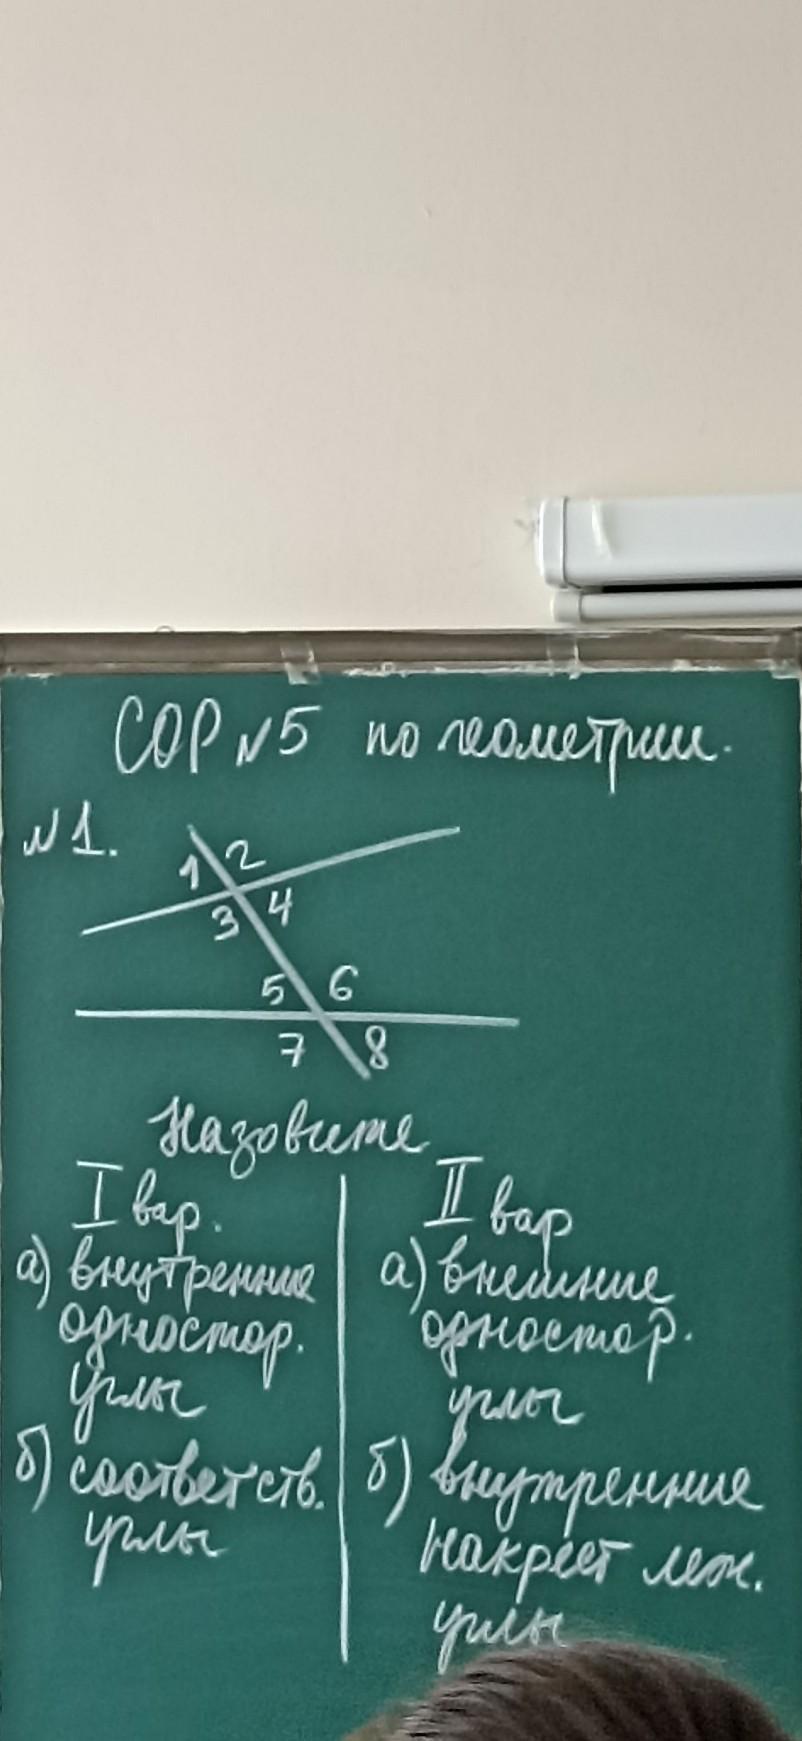 СОР №5 по геометрии.
№1.
1 2
3 4
5 6
7 8
Назовите
I вар.
а) внутренние
одностор.
углы
б) соответств.
углы
II вар
а) внешние
одностор.
углы
б) внутренние
накрест леж.
углы